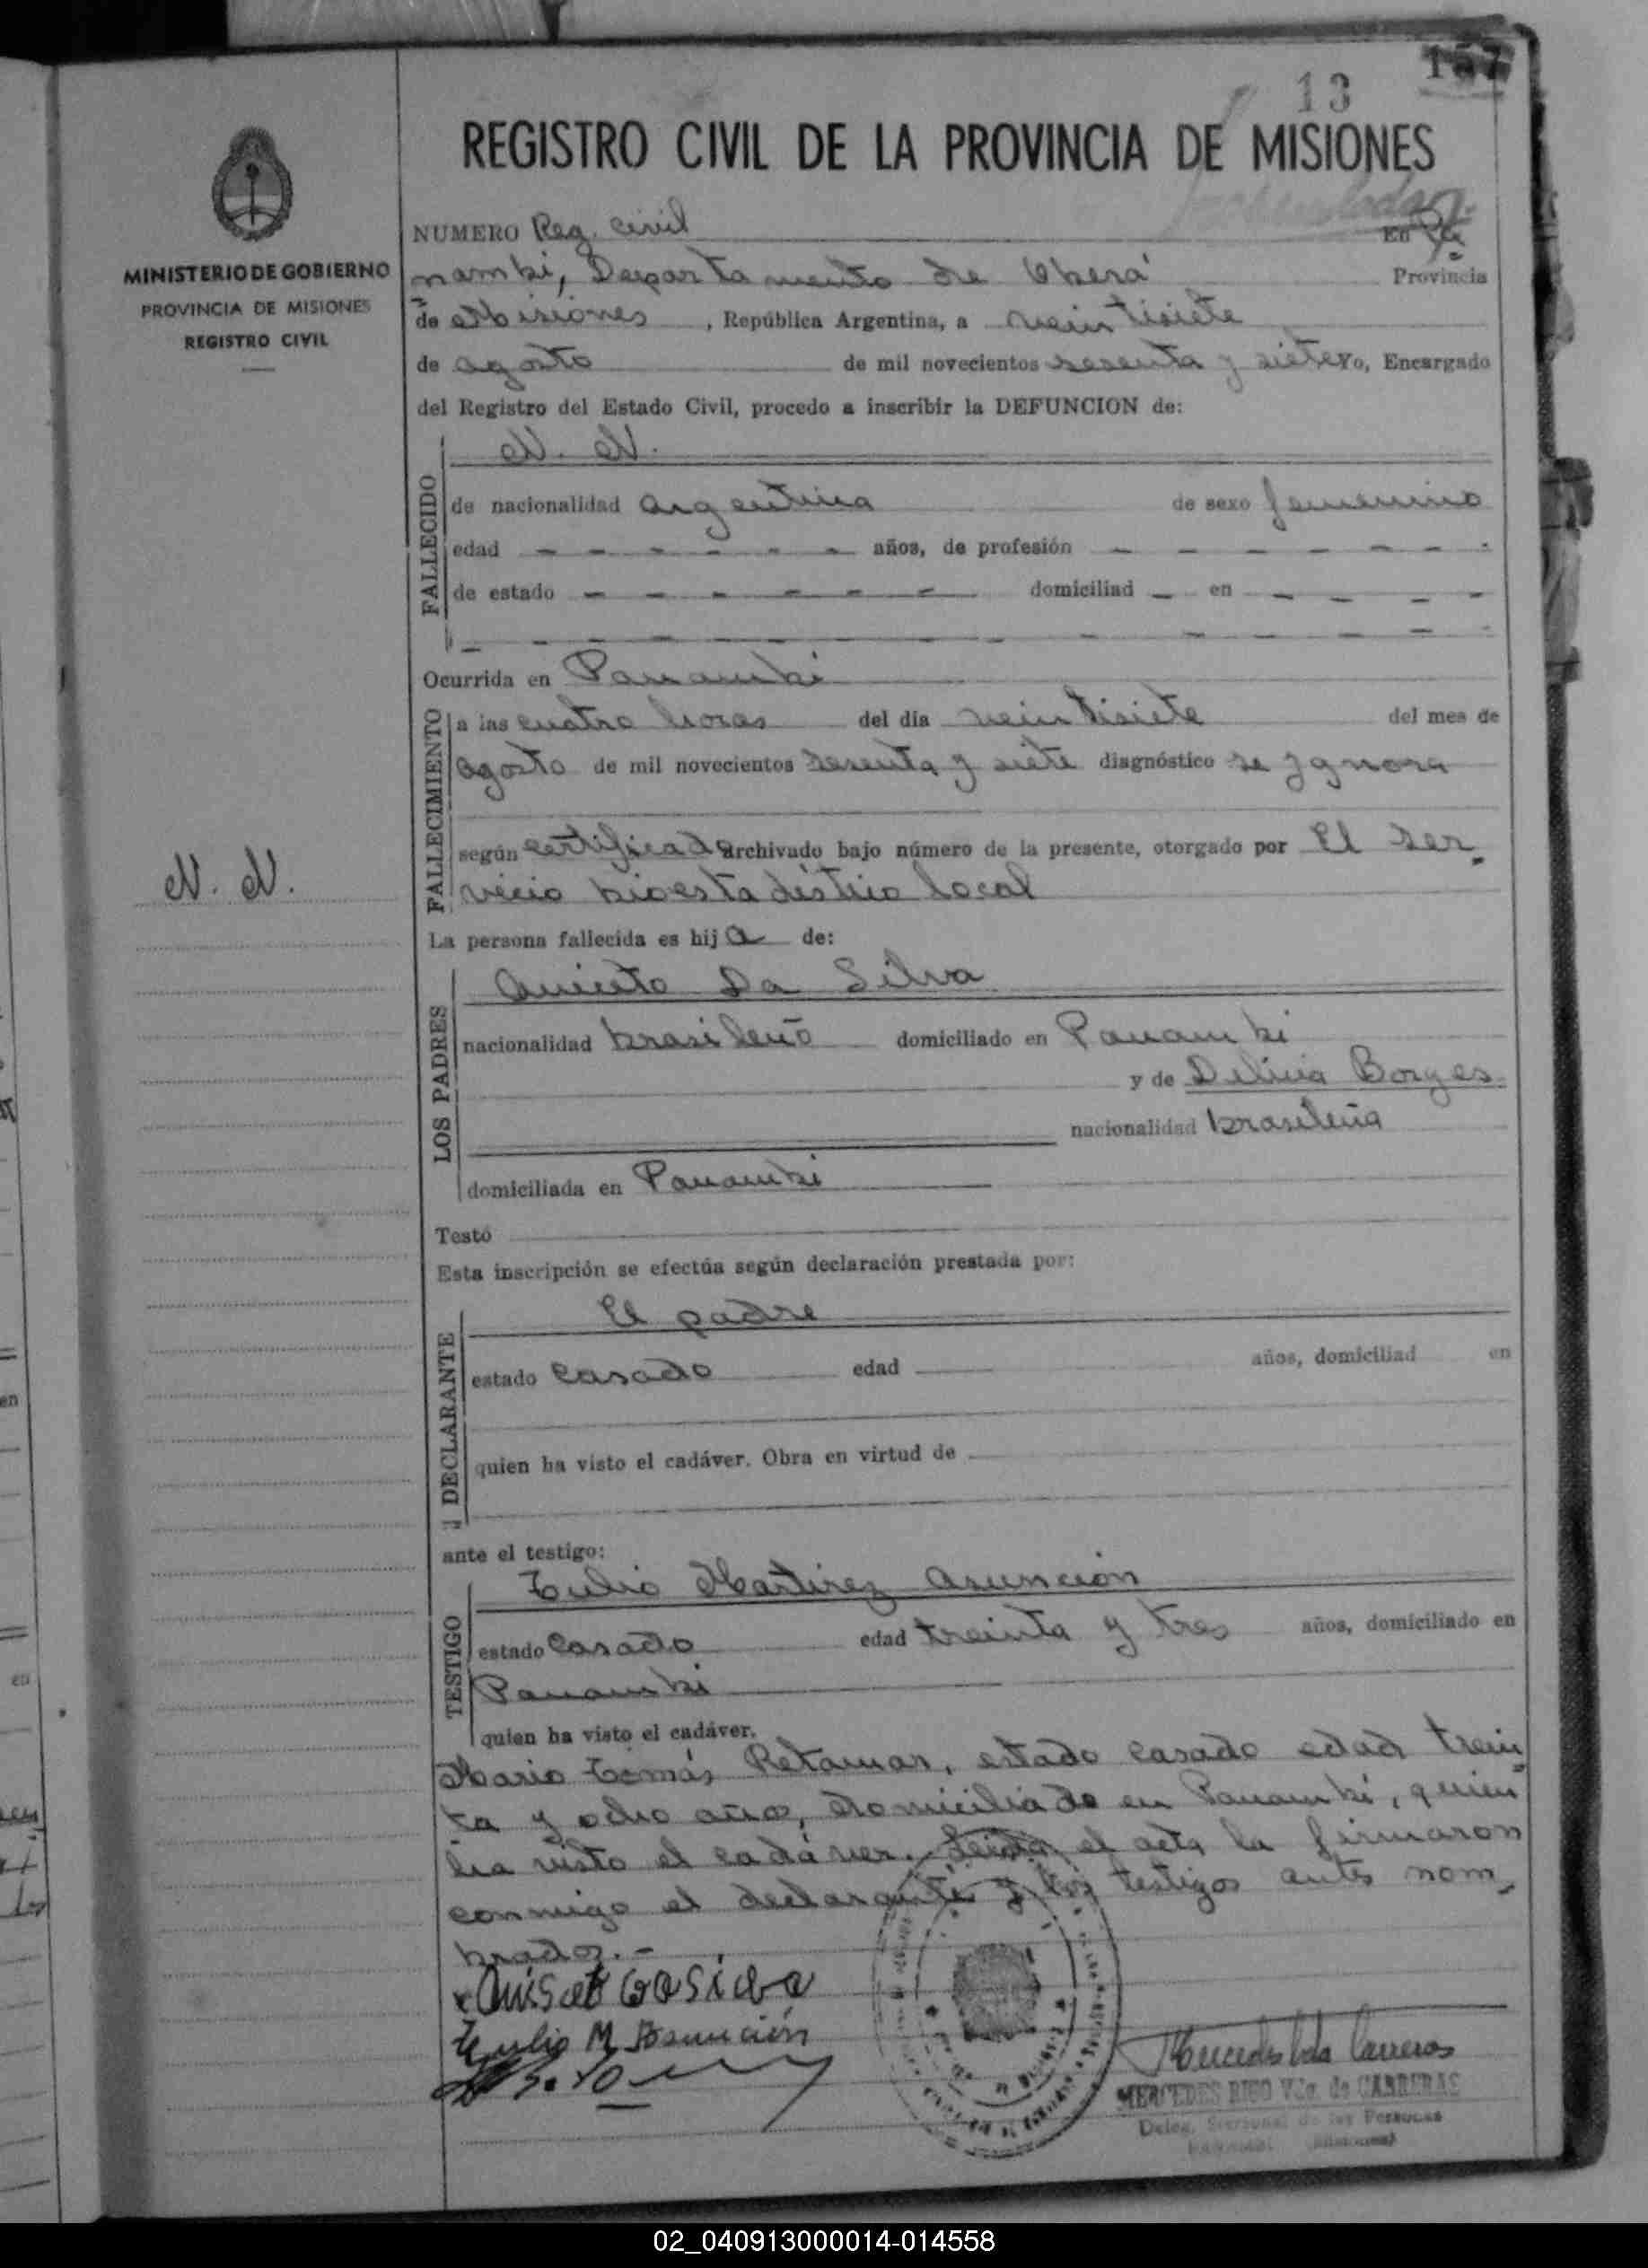 157
13
REGISTRO CIVIL DE LA PROVINCIA DE MISIONES
MINISTERIO DE GOBIERNO
PROVINCIA DE MISIONES
REGISTRO CIVIL
N. N.
NUMERO Reg. civil En Pa
nambi, Departamento de Oberá Provincia
de Misiones , República Argentina, a veintisiete
de agosto de mil novecientos sesenta y siete Yo, Encargado
del Registro del Estado Civil, procedo a inscribir la DEFUNCION de:
FALLECIDO
N. N.
de nacionalidad argentina de sexo femenino
edad - - - - - - años, de profesión - - - - - - -
de estado - - - - - - domiciliad - en - - - -
Ocurrida en Panambi
FALLECIMIENTO
a las cuatro horas del día veintisiete del mes de
agosto de mil novecientos sesenta y siete diagnóstico se ygnora
según certificado archivado bajo número de la presente, otorgado por El ser
vicio bioestadístico local
La persona fallecida es hija de:
LOS PADRES
Aniceto Da Silva
nacionalidad brasileño domiciliado en Panambi
y de Delicia Borges
nacionalidad brasileña
domiciliada en Panambi
Testó
Esta inscripción se efectúa según declaración prestada por:
DECLARANTE
El padre
estado casado edad años, domiciliad en
quien ha visto el cadáver. Obra en virtud de
ante el testigo:
TESTIGO
Tulio Martinez Asunción
estado casado edad treinta y tres años, domiciliado en
Panambi
quien ha visto el cadáver.
Mario Tomás Retamar, estado casado edad trein
ta y ocho años, domiciliado en Panambi, quien
ha visto el cadáver. Leida el acta la firmaron
conmigo el declarante y los testigos antes nom
brados.-
Tulio M Asunción
MERCEDES RICO Vda. de CARRERAS
Deleg. Seccional de las Personas
02_040913000014-014558